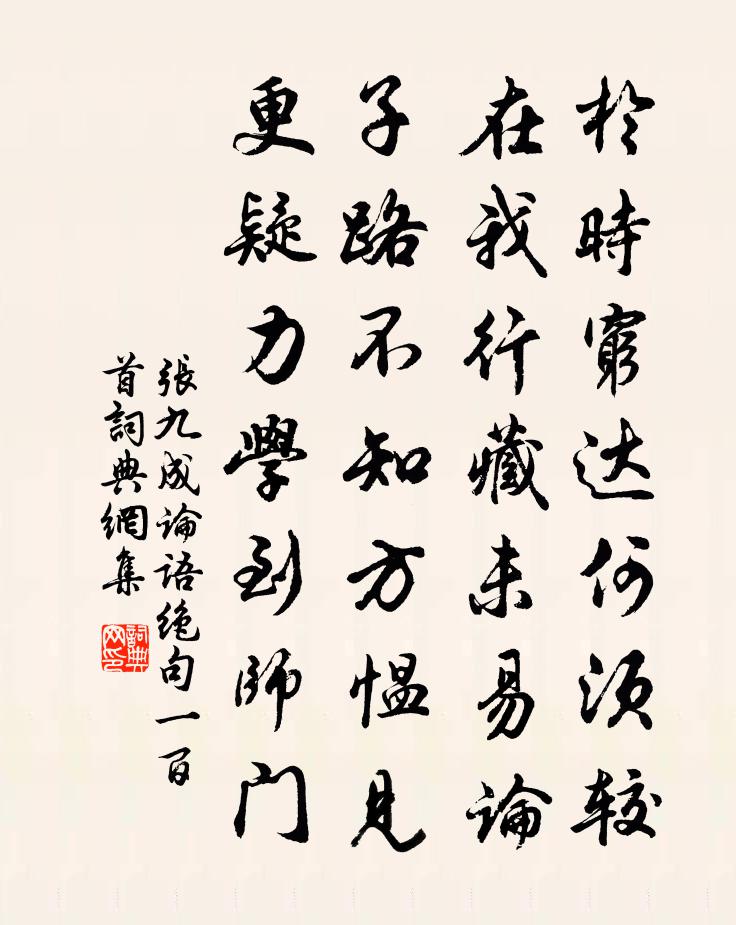 於時窮达何須较
在我行藏未易論
子路不知方愠見
更疑力學到師门
張九成論语絶句一百
首詞典網集
詞典网印